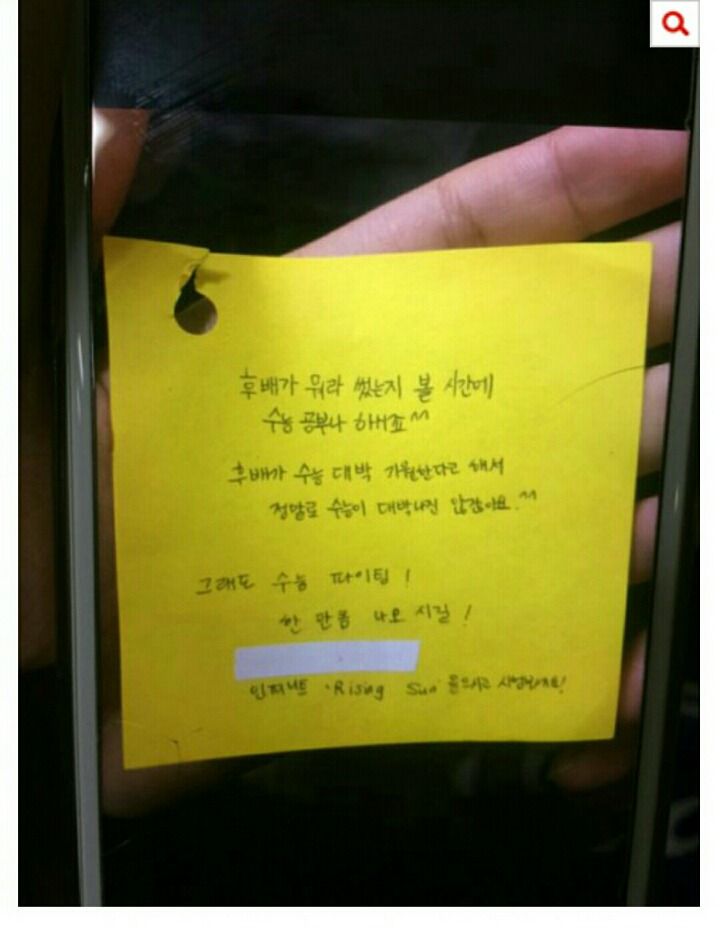 후배가 뭐라 썼는지 볼 시간에
수능 공부나 하셔죠^^
후배가 수능 대박 기원한다고 해서
정말로 수능이 대박나진 않잖아요.^^
그래도 수능 파이팅!
한 만큼 나오시길!
인피니트 'Rising Sun' 들으시고 시험보세요!